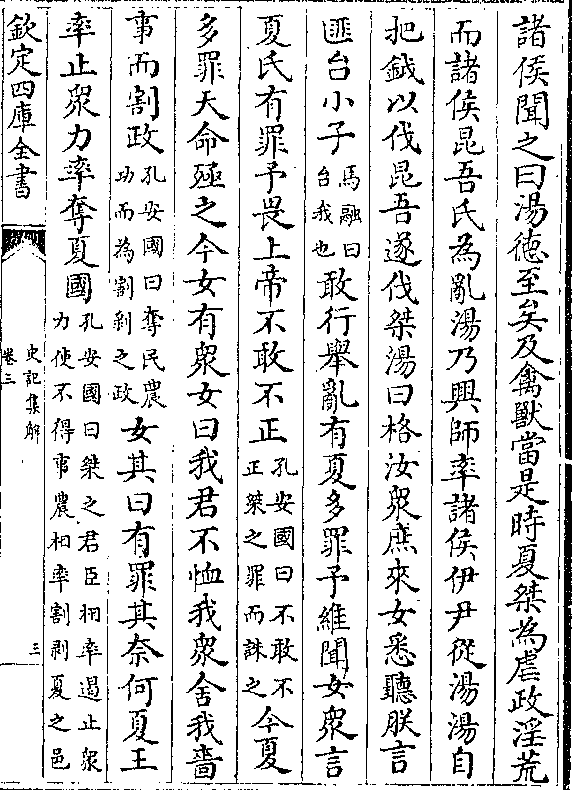 諸侯聞之曰湯徳至矣及禽獸當是時夏桀為虐政淫荒
而諸侯昆吾氏為亂湯乃興師率諸侯伊尹從湯湯自
把鉞以伐昆吾遂伐桀湯曰格汝衆庶來女悉聽朕言
匪台小子馬融曰台我也敢行舉亂有夏多罪予維聞女衆言
夏氏有罪予畏上帝不敢不正孔安國曰不敢不正桀之罪而誅之今夏
多罪天命殛之今女有衆女曰我君不恤我衆舍我嗇
事而割政孔安國曰奪民農功而為割剝之政女其曰有罪其奈何夏王
率止衆力率奪夏國孔安國曰桀之君臣相率遏止衆力使不得事農相率割剥夏之邑
欽定四庫全書
史記集解
卷三
三